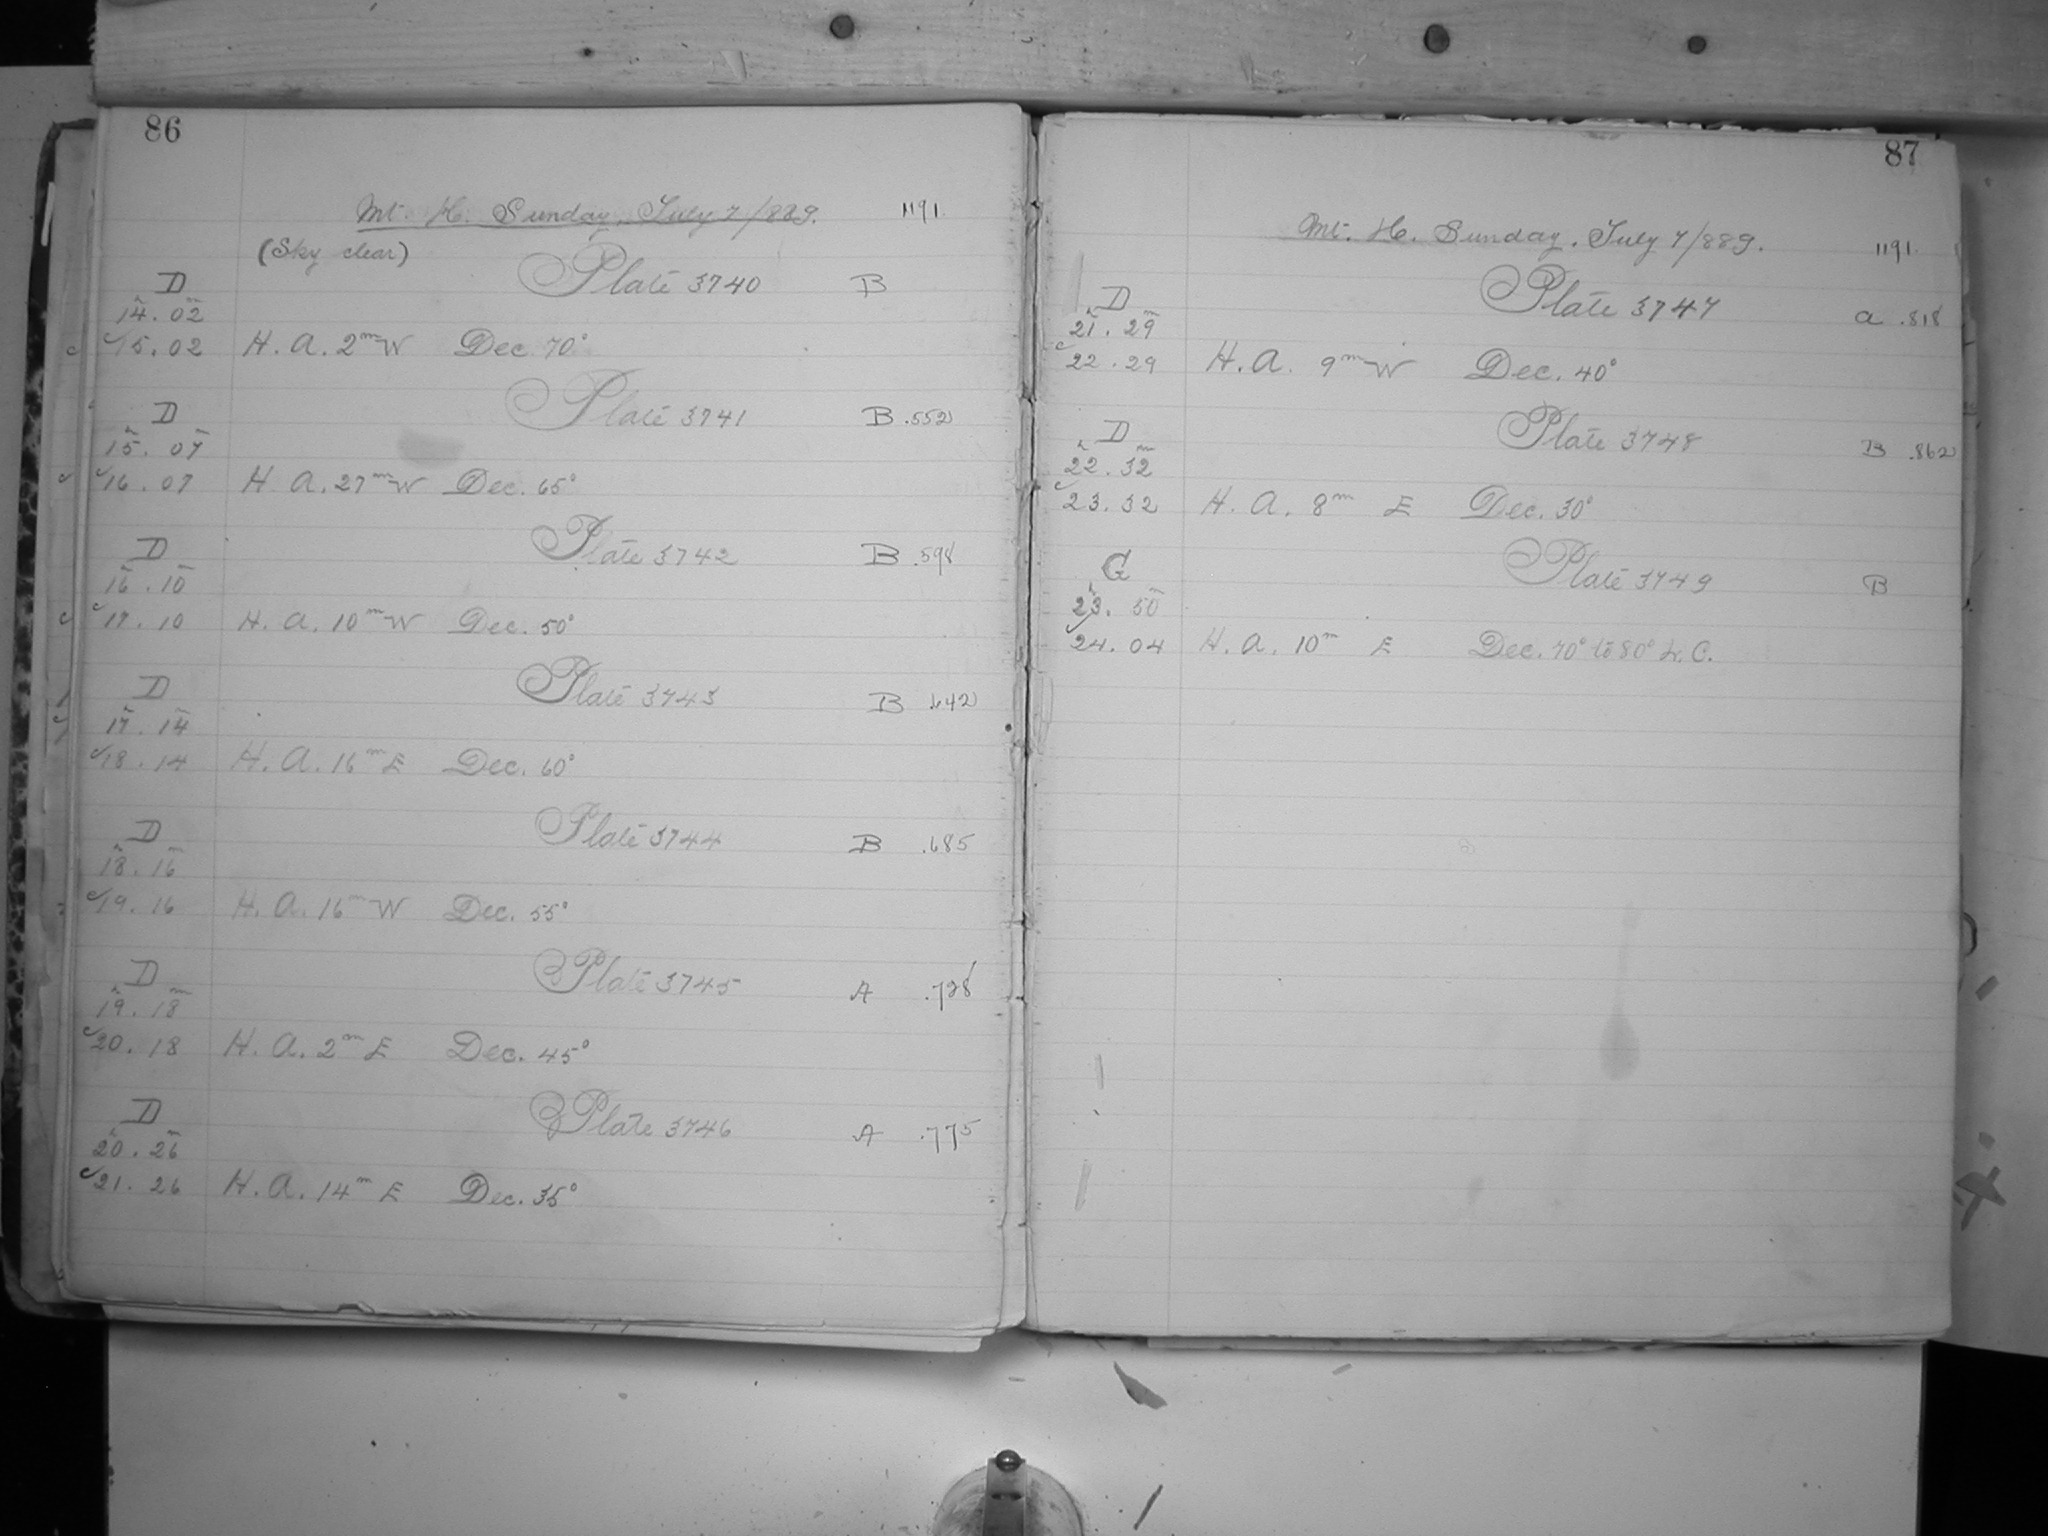 86
Mt. H. Sunday, July 7/889. 1191.
(Sky clear)
D Plate 3740 B
14h. 02m
15. 02 H. A. 2m W Dec. 70°
D Plate 3741 B .552
15h. 07m
16. 07 H. A. 27m W Dec. 65°
D Plate 3742 B .598
16h. 10m
17. 10 H. A. 10m W Dec. 50°
D Plate 3743 B .642
17h. 14m
18. 14 H. A. 16m E Dec. 60°
D Plate 3744 B .685
18h. 16m
19. 16 H. A. 16m W Dec. 55°
D Plate 3745 A .728
19h. 18m
20. 18 H. A. 2m E Dec. 45°
D Plate 3746 A .775
20h. 26m
21. 26 H. A. 14m E Dec. 35°
87
Mt. H. Sunday, July 7/889. 1191.
D Plate 3747 a .818
21h. 29m
22. 29 H. A. 9m W Dec. 40°
D Plate 3748 B .862
22h. 32m
23. 32 H. A. 8m E Dec. 30°
G Plate 3749 B
23h. 50m
24. 04 H. A. 10m E Dec. 70° to 80° L. C.